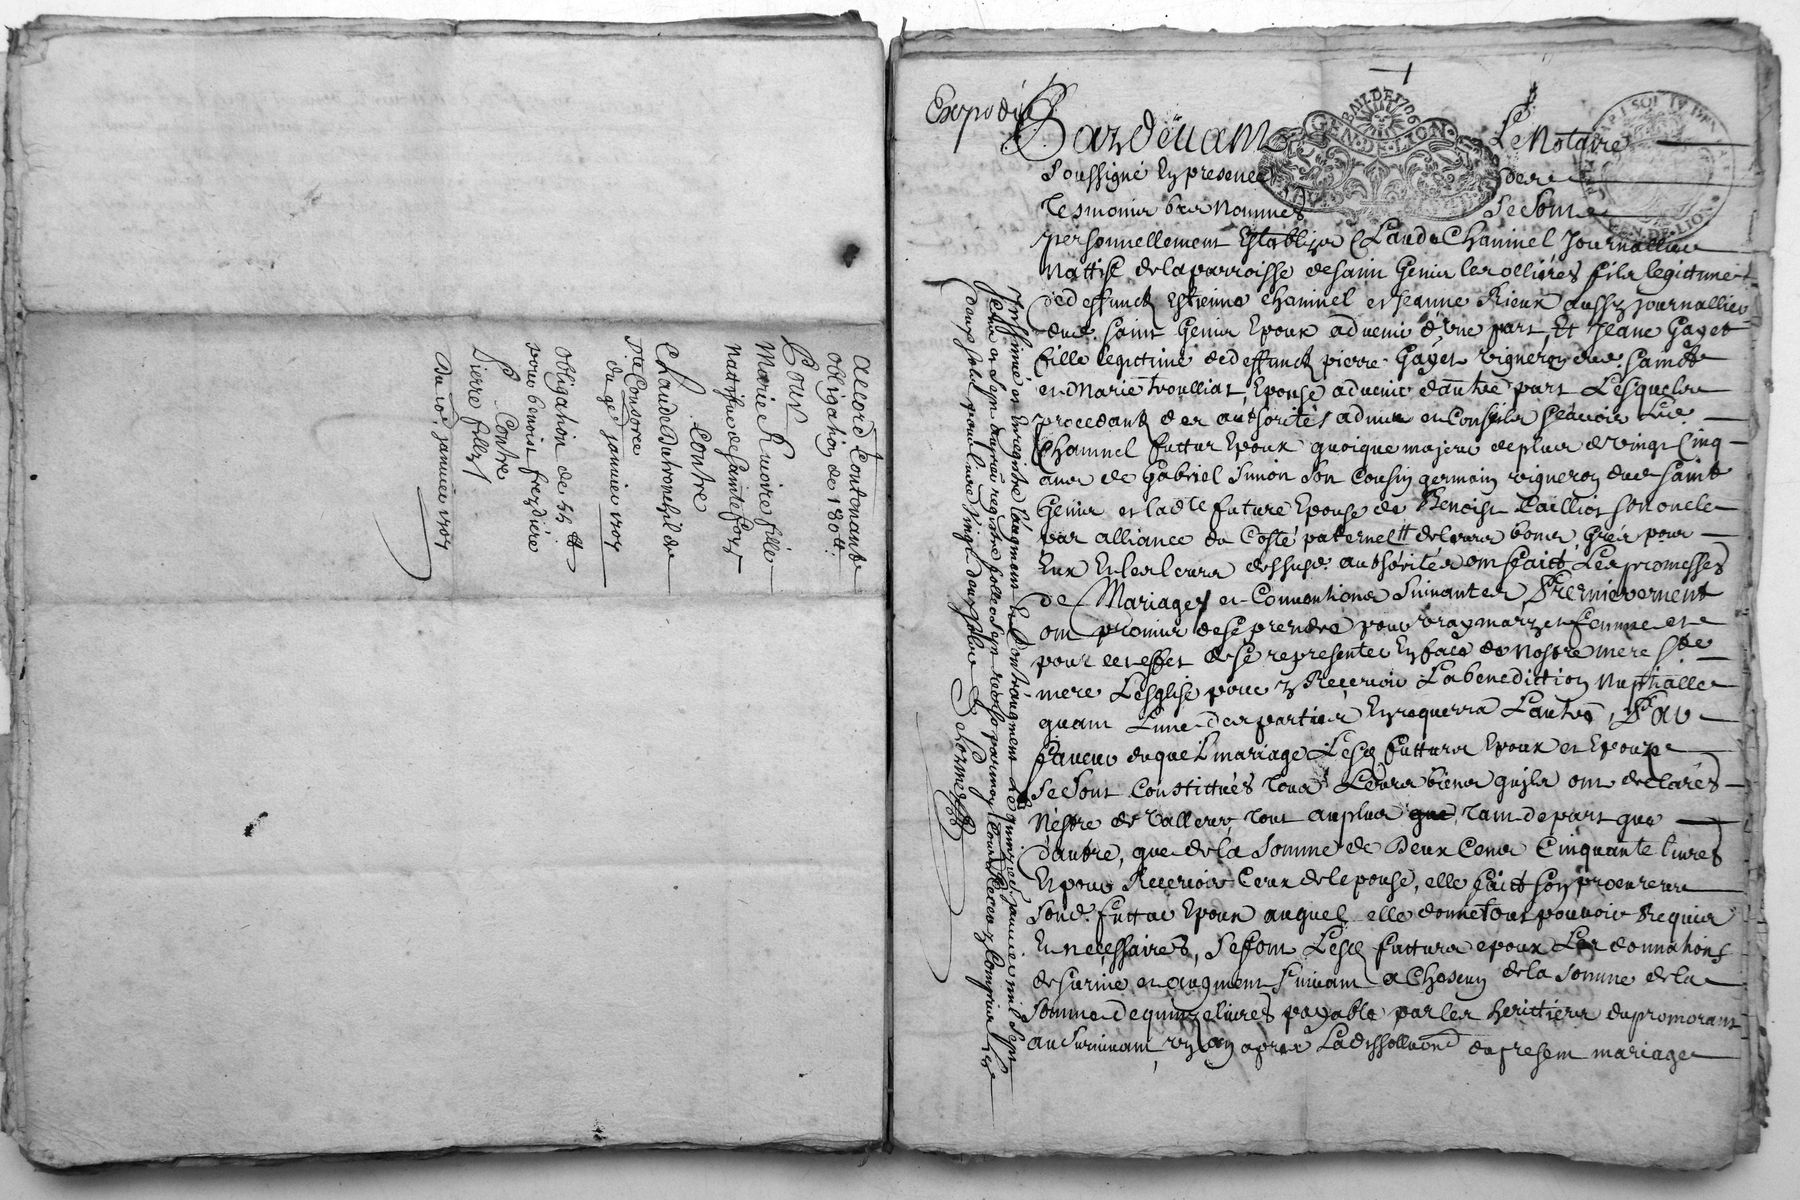 accord Contenant
obligation de 180 tt
Pour
Marie Ruivire fille
nattifue de Sainte foy
Contre
Claude Dutronchil de
Pte Consorce
du 9e janvier 1707
obligation de 55 tt
pour benoist frezdiere
Contre
Pierre fillz
du 10e janvier 1707
Expedié
Pardevant Le Notaire
BAIL DE 1706
GEN DE LION
Soussigné En presence des
Tesmoins bas Nommes Se Sont
personnellement Establis Claude Chaninel Journallier
Nattif de la parroisse de Saint Genis les ollieres fils legitime
de deffunct Estienne Chaninel et Jeanne Rieux aussy journallier
dud. Saint Genis Epoux advenir d'une part, Et Jeane Gayet
fille legitime de deffunct pierre Gayet vigneron de Sainte
et Marie troulliat, Epouse advenir d'autre part Lesquels
procedant des authorités advis et Conseils scavoir led.
Chaninel futtur Epoux quoique majeur de plus de vingt Cinq
ans de Gabriel Simon Son Cousin germain vigneron dud Saint
Genis et ladte future Epouse de Benoist Cailliot son oncle
par alliance du Costé paternel de leurs bons gréz pour
Eux Et les leurs dessusd. authorités ont faict Les promesses
de Mariage et Conventions Suivantes, Premierement
ont promis de Se prendre pour vray mary et femme et
pour cet effet de Se representer En face de Nostre mere Ste
mere L'esglise pour y Recevoir La benediction Nuptialle
quant L'une des parties En requerra L'autre, Et au
faveur duquel mariage Lesd futturs Epoux et Epouze
Se Sont Constitués Tous Leurs biens quils ont declarés
N'estre de valleur tout au plus que, Tant de part que
d'autre, que de la Somme de Deux Cent Cinquante livres
Et pour Recevoir Ceux de lepouse, elle faict Son procureur
Sond. futtur Epoux auquel elle donne tout pouvoir Requis
Et necessaires, Se font Lesd futturs epoux Les donnations
de Survie et augment Suivant a Chascun de la Somme de la
Somme de quinze livres payable par les heritiers du premorant
au Survivant un an apres La dissollution du present mariage
Insinué et Enregistré laugment Et Contraugment le quinze janvier mil Sept